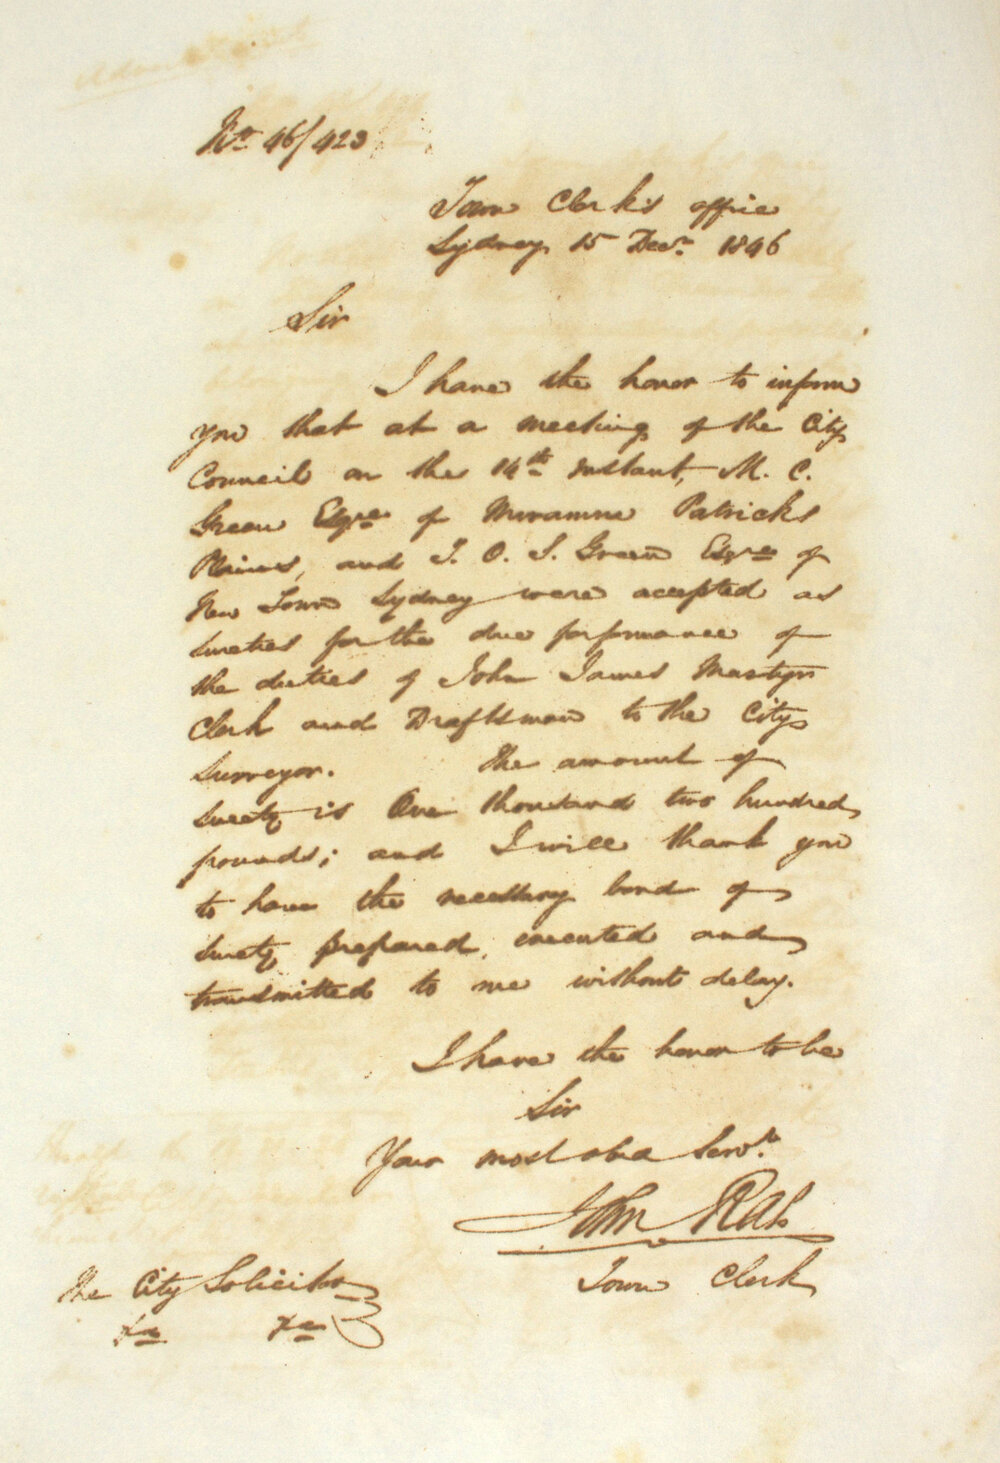 No. 46/423
Town Clerk's office
Sydney 15 Decr. 1846
Sir
I have the honor to inform
you that at a meeting of the City
Council on the 14th Instant, M. C.
Green Esqre of Patricks
Plains, and T. O. S. Green Esqre of
New Town Sydney were accepted as
sureties for the due performance of
the duties of John James Martyn
Clerk and Draftsman to the City
Surveyor. The amount of
surety is One thousand two hundred
pounds; and I will thank you
to have the necessary bond of
surety prepared, executed and
transmitted to me without delay.
I have the honor to be
Sir
Your most obed Servt.
John Rae
Town Clerk
The City Solicitor
&c &c